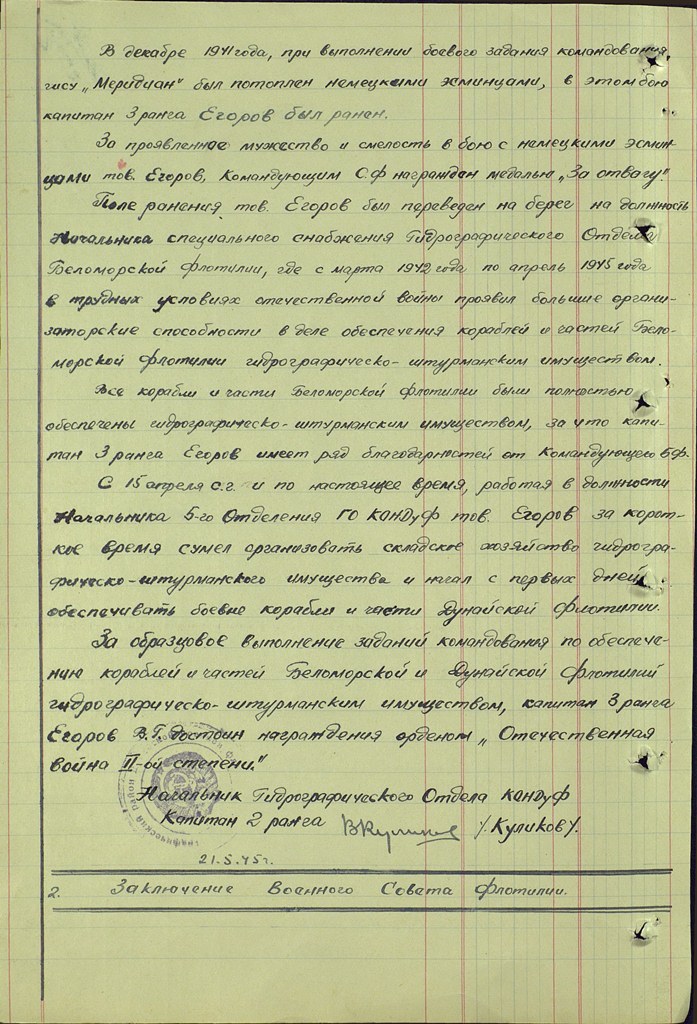 В декабре 1941 года, при выполнении боевого задания командования
гису „Меридиан" был потоплен немецкими эсминцами, в этом бою
капитан 3 ранга Егоров был ранен.
За проявленное мужество и смелость в бою с немецкими эсмин-
цами тов. Егоров, Командующим СФ награжден медалью „За отвагу".
После ранения тов. Егоров был переведен на берег на должность
Начальника специального снабжения Гидрографического Отдела
Беломорской флотилии, где с марта 1942 года по апрель 1945 года
в трудных условиях отечественной войны проявил большие органи-
заторские способности в деле обеспечения кораблей и частей Бело-
морской флотилии гидрографическо-штурманским имуществом.
Все корабли и части Беломорской флотилии были полностью
обеспечены гидрографическо-штурманским имуществом, за что капи-
тан 3 ранга Егоров имеет ряд благодарностей от Командующего БФ.
С 15 апреля с.г. и по настоящее время, работая в должности
Начальника 5-го Отделения ГО КОНДуФ тов. Егоров за корот-
кое время сумел организовать складское хозяйство гидрогра-
фическо-штурманского имущества и начал с первых дней
обеспечивать боевые корабли и части Дунайской флотилии.
За образцовое выполнение заданий командования по обеспече-
нию кораблей и частей Беломорской и Дунайской флотилий
гидрографическо-штурманским имуществом, капитан 3 ранга
Егоров В.Г. достоин награждения орденом „Отечественная
война II-ой степени."
Начальник Гидрографического Отдела КОНДуФ
Капитан 2 ранга ВКуликов /.Куликов/.
21.5.45г.
2. Заключение Военного Совета флотилии.